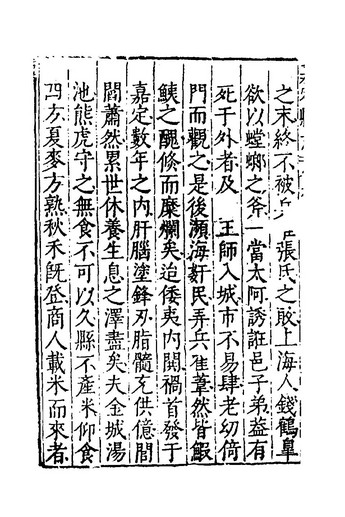 之末終不被兵 張氏之敗上海人錢鶴皐
欲以螳螂之斧一當太阿誘誑邑子弟葢有
死于外者及 王師入城市不易肆老幼倚
門而觀之是後瀕海姧民弄兵萑葦然皆鰕
鮧之醜倏而糜爛矣迨倭夷内䦧禍首發于
嘉定數年之内肝腦塗鋒刃脂髓充供億閭
閻蕭然累世休養生息之澤盡矣夫金城湯
池熊虎守之無食不可以久縣不産米仰食
四方夏麥方熟秋禾既登商人載米而來者